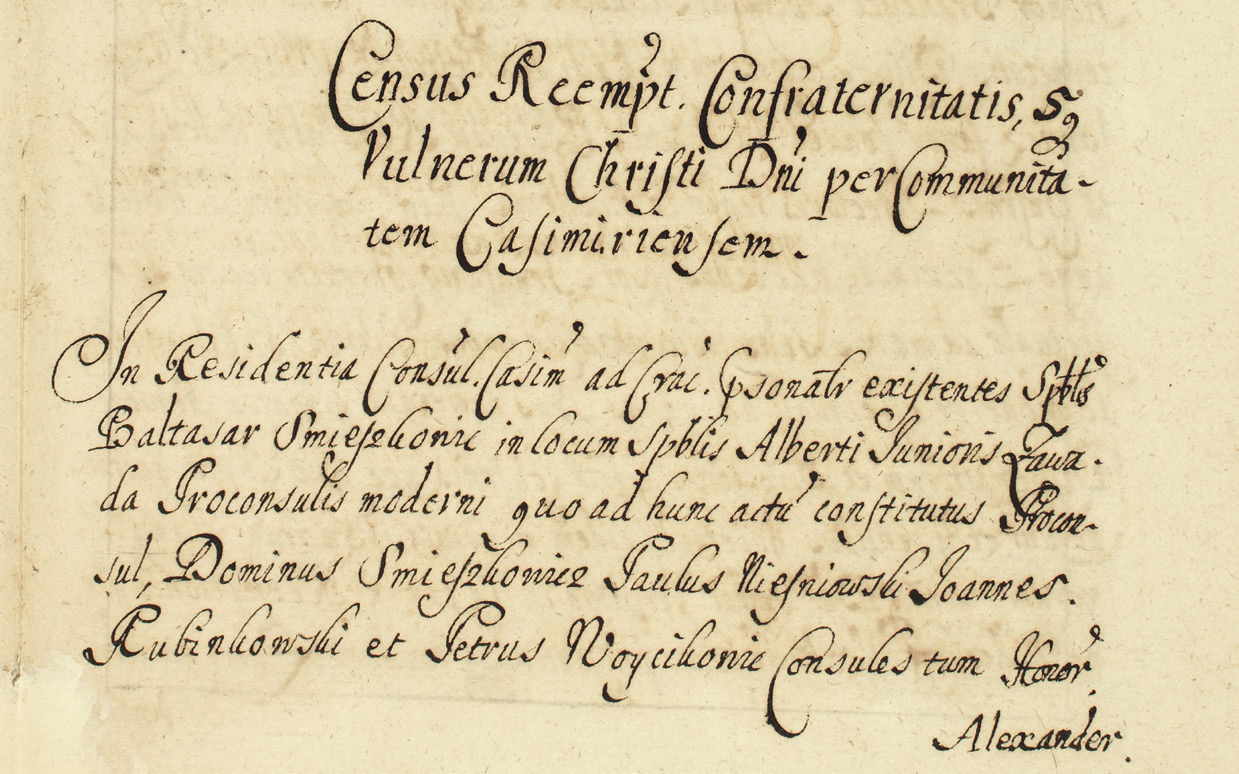 Census Reempt. Confraternitatis, 5q
Vulnerum Christi Dni per Communita-
tem Casimiriensem.
In Residentia Consul. Casim ad Crac. psonalr existentes Spbls
Baltasar Smieszkowic in locum Spblis Alberti Junioris Zawa-
da Proconsulis moderni quo ad hunc actu constitutus Procon-
sul, Dominus Smieszkowicz Paulus Niesniowski Joannes.
Rubinkowski et Petrus Woycikowic Consules tum Honor.
Alexander.